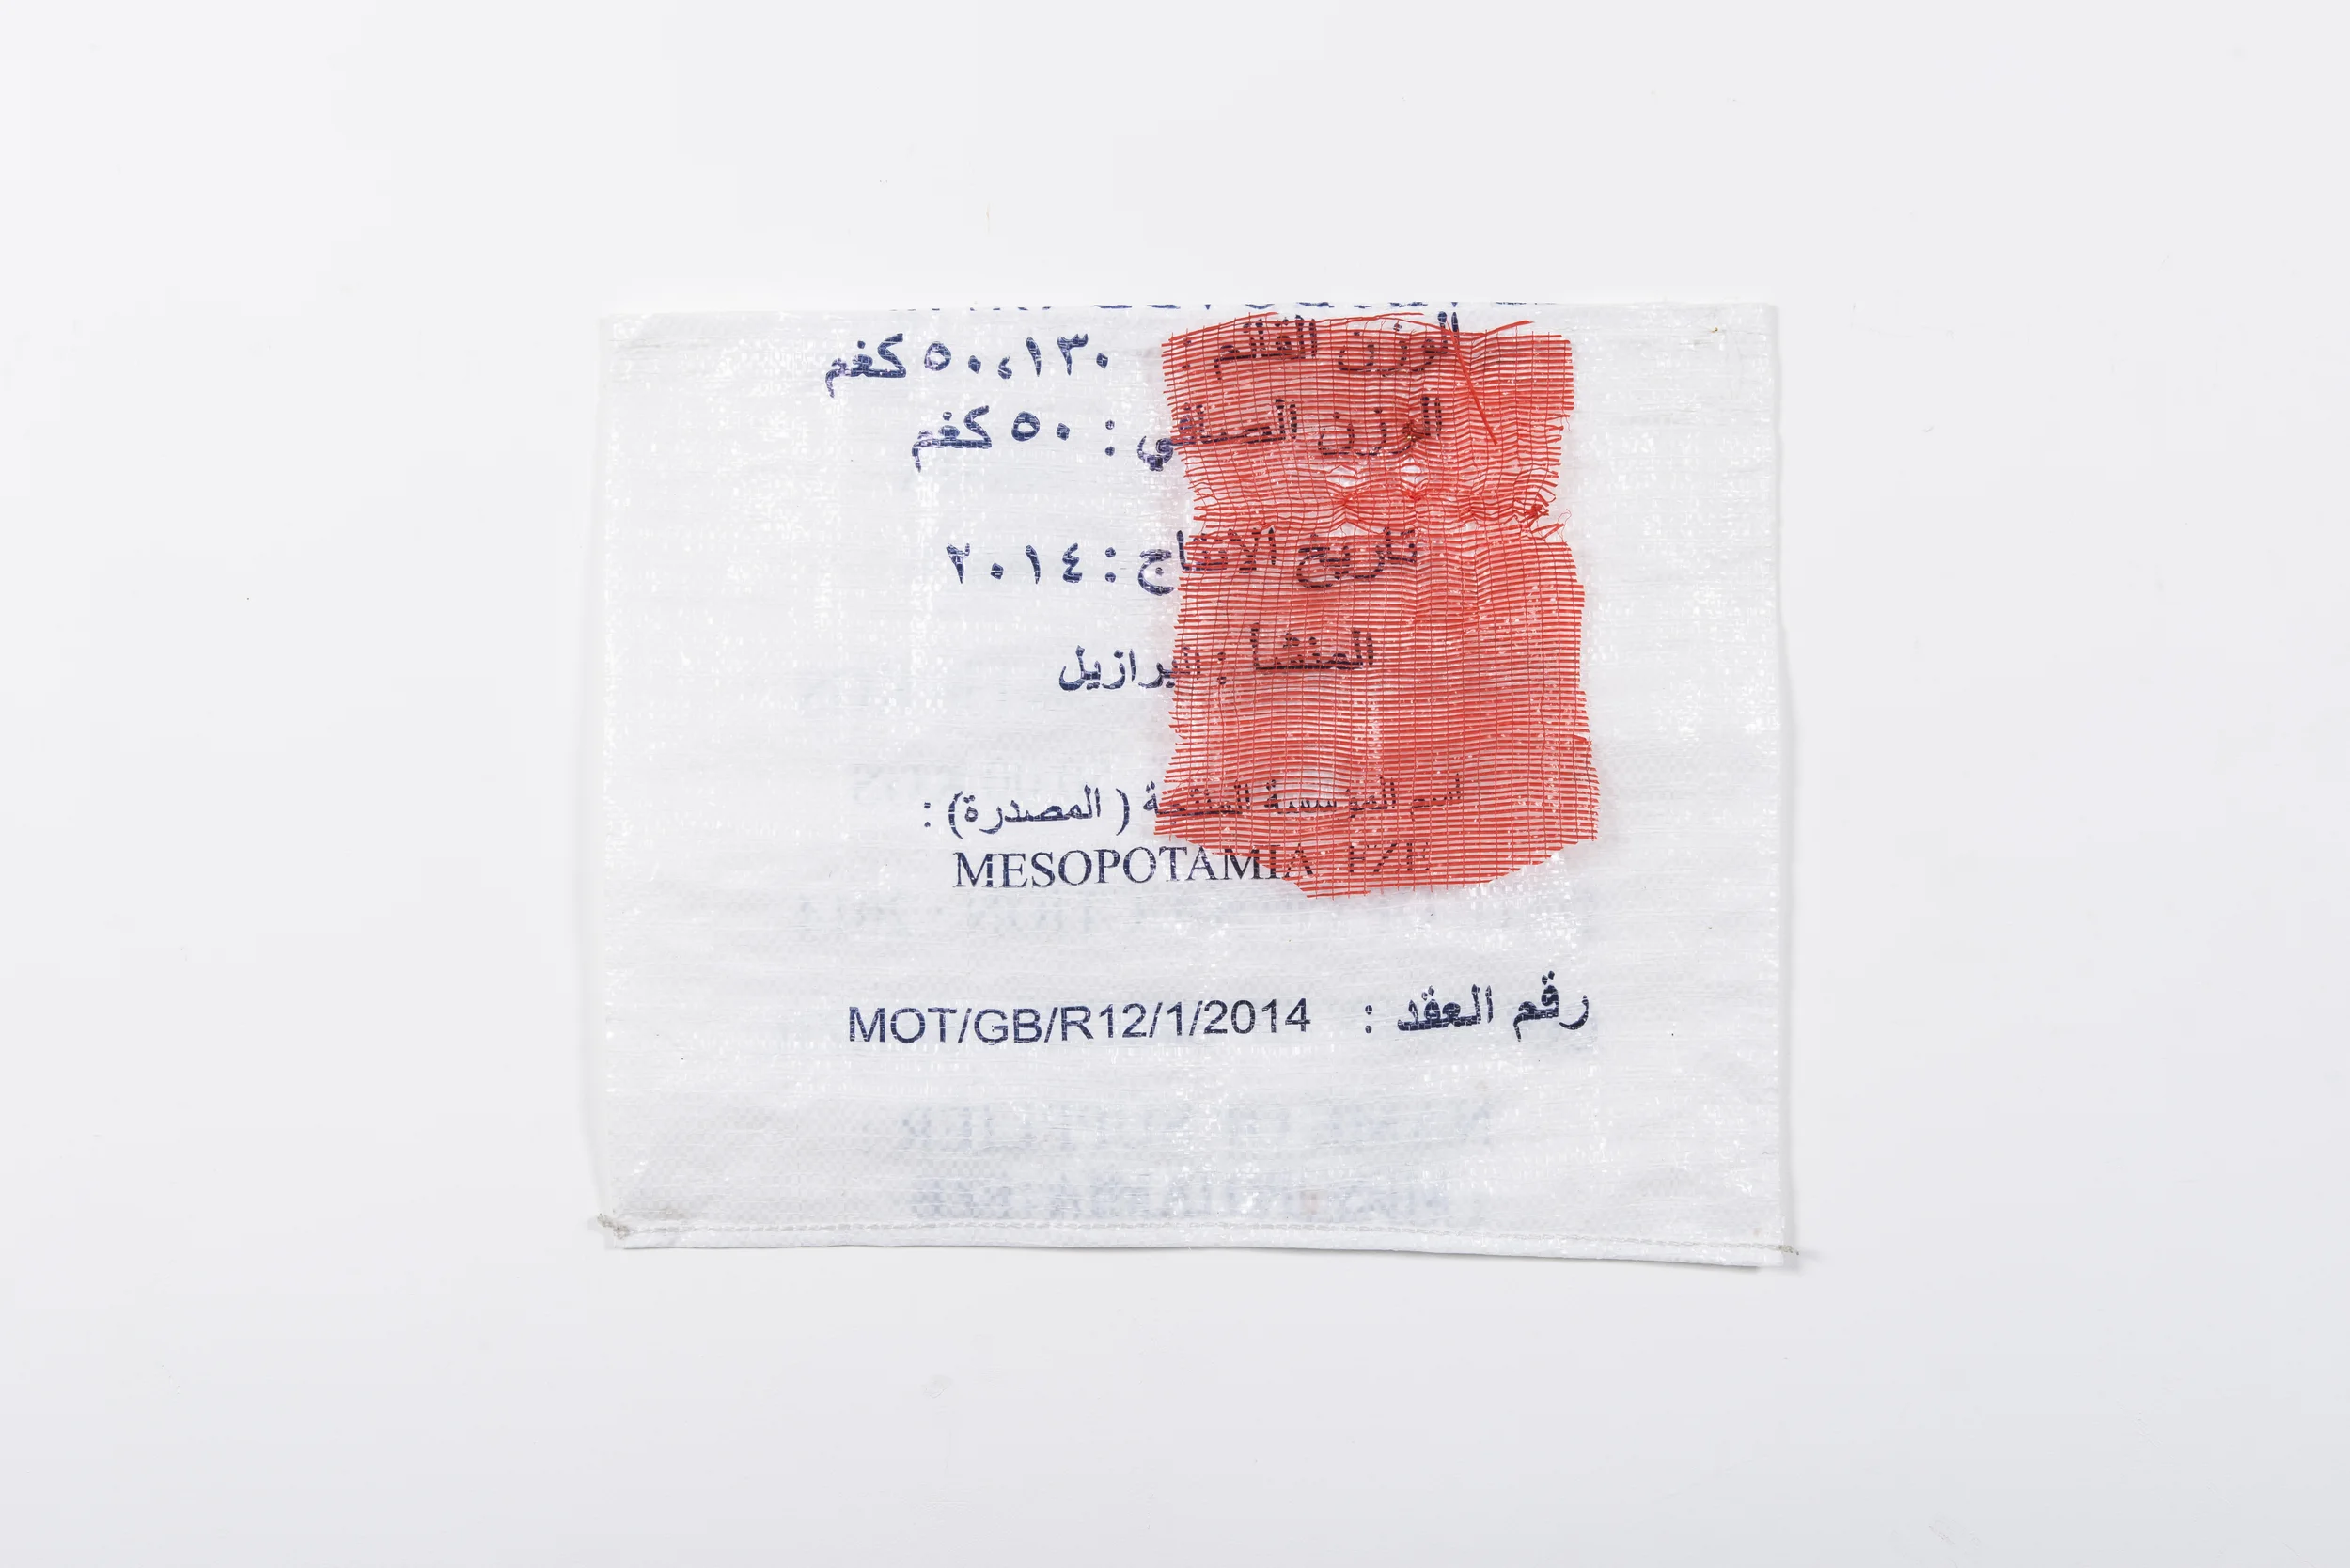 الوزن القائم : ٥٠،١٣٠ كغم
الوزن الصافي : ٥٠ كغم
تاريخ الانتاج : ٢٠١٤
المنشأ : البرازيل
اسم المؤسسة المنتجة ( المصدرة) :
MESOPOTAMIA F/F
رقم العقد : MOT/GB/R12/1/2014